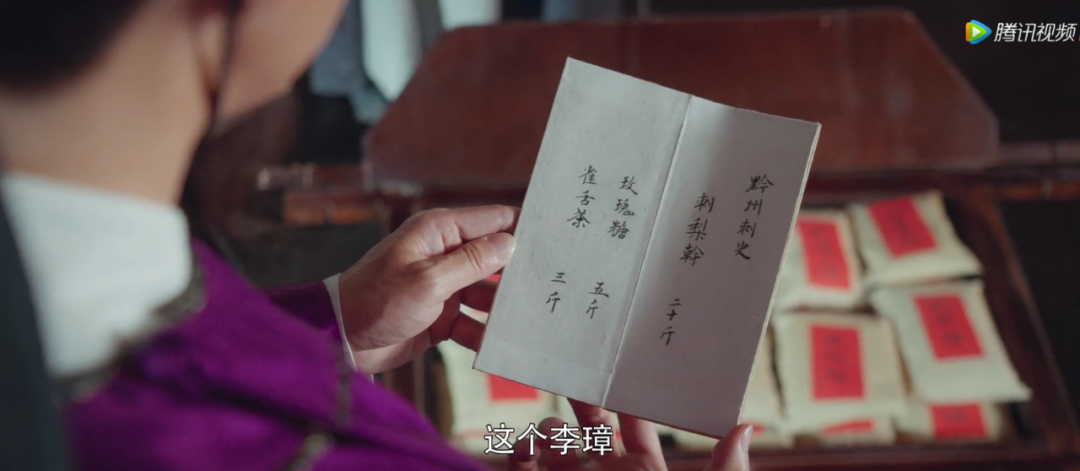 腾讯视频
黔州刺史
刺梨幹 二十斤
玫瑰糖 五斤
雀舌茶 三斤
这个李璋